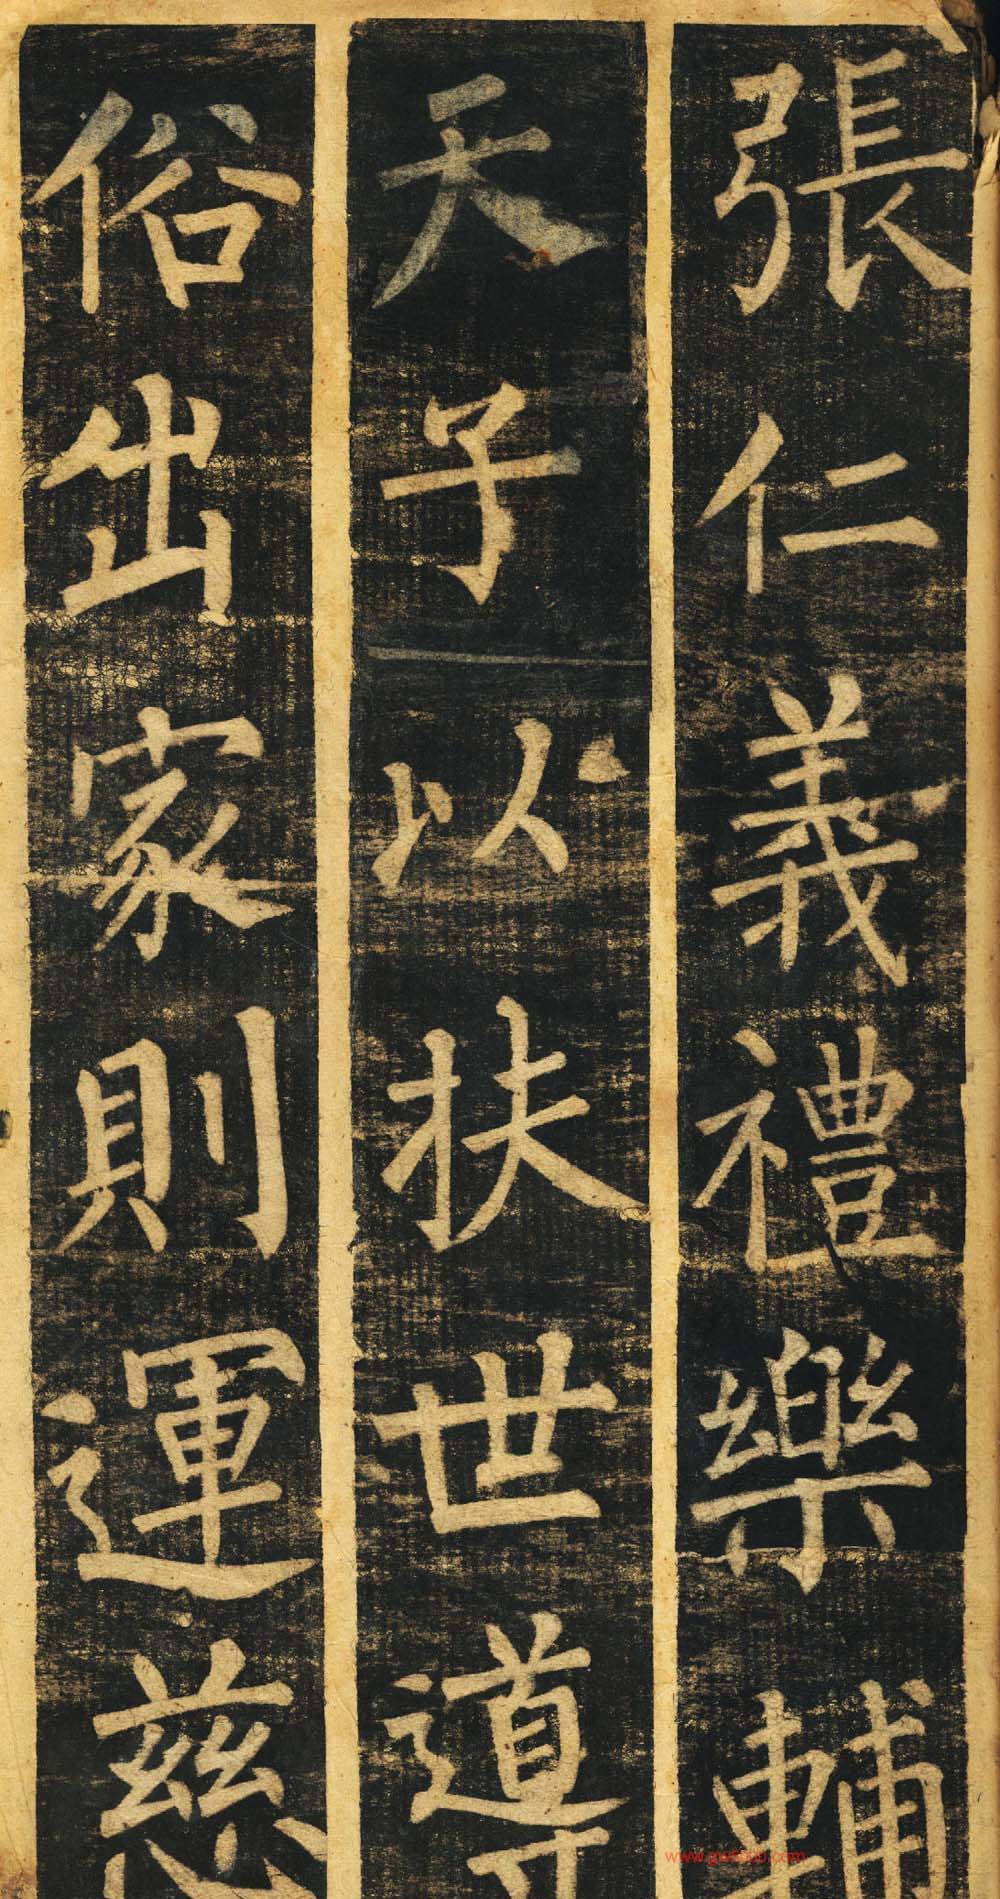 張仁義禮樂輔
天子以扶世導
俗出家則運慈